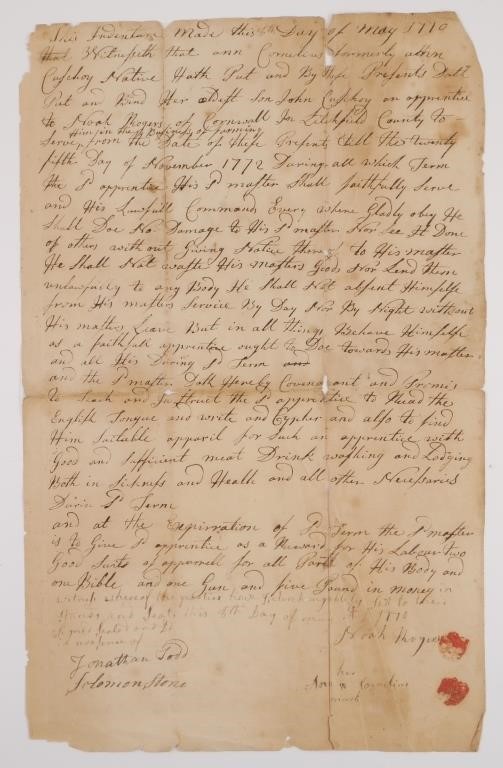 This Indenture Made this 8th Day of May 1770
that Witnesseth that ann Cornelius formerly
Cuschoy Native Hath Put and By these Presents Doth
Put an Bind Her Son John Cuschoy an apprentice
to Noah Rogers of Cornwall In Litchfield County to
Him in these Business of farming
Serve from the Date of these Presents till the twenty
fifth Day of November 1772 During all which Term
the Sd apprentice His Sd master Shall faithfully Serve
and His Lawfull Command Every where Gladly obey He
Shall Doe No Damage to His Sd master Nor See It Done
of others without Giving Notice thereof to His master
He Shall Not waste His masters Goods Nor Lend them
unlawfuly to any Body He Shall Not absent Himself
from His masters Service By Day Nor By Night without
His masters Leave But in all things Behave Himselfe
as a faithfull apprentice ought to Doe towards His master
and all His During Sd Term
and the Sd master Doth Hereby Covenant and Promis
to Teach and Instruct the Sd apprentice to Read the
English Tongue and write and Cypher and also to find
Him Suitable apparil for Such an apprentice with
Good and Sufficient meat Drink washing and Lodging
Both in Sickness and Health and all other Necessaries
During Sd Term
and at the Expirration of Sd Term the Sd master
is to Give Sd apprentice as a Reward for His Labour two
Good Suits of apparell for all Parts of His Body and
one Bible and one Gun and five Pound in money in
witnes whereof the parties have set to their
Hands and Seals this 8th Day of may 1770
Signed Sealed and
in presence of
Noah Rogers
Jonathan Todd
Solomon Stone
her
Ann x Cornelius
mark